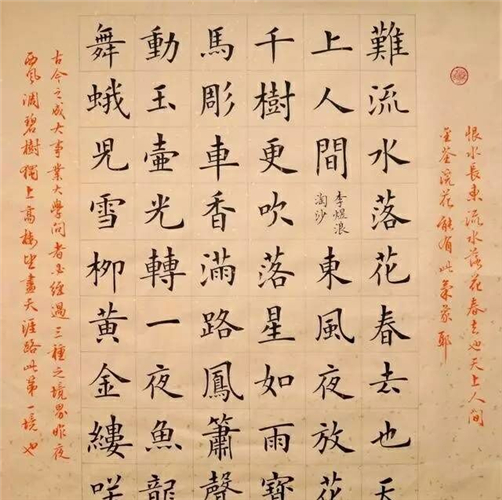 恨水長東流水落花春去也天上人間
金荃浣花能有此氣象耶
難流水落花春去也天
上人間
李煜浪
淘沙
東風夜放花
千樹更吹落星如雨寶
馬彫車香滿路鳳簫聲
動玉壺光轉一夜魚龍
舞蛾兒雪柳黃金縷咲
古今之成大事業大學問者必經過三種之境界昨夜
西風凋碧樹獨上高樓望盡天涯路此第一境也